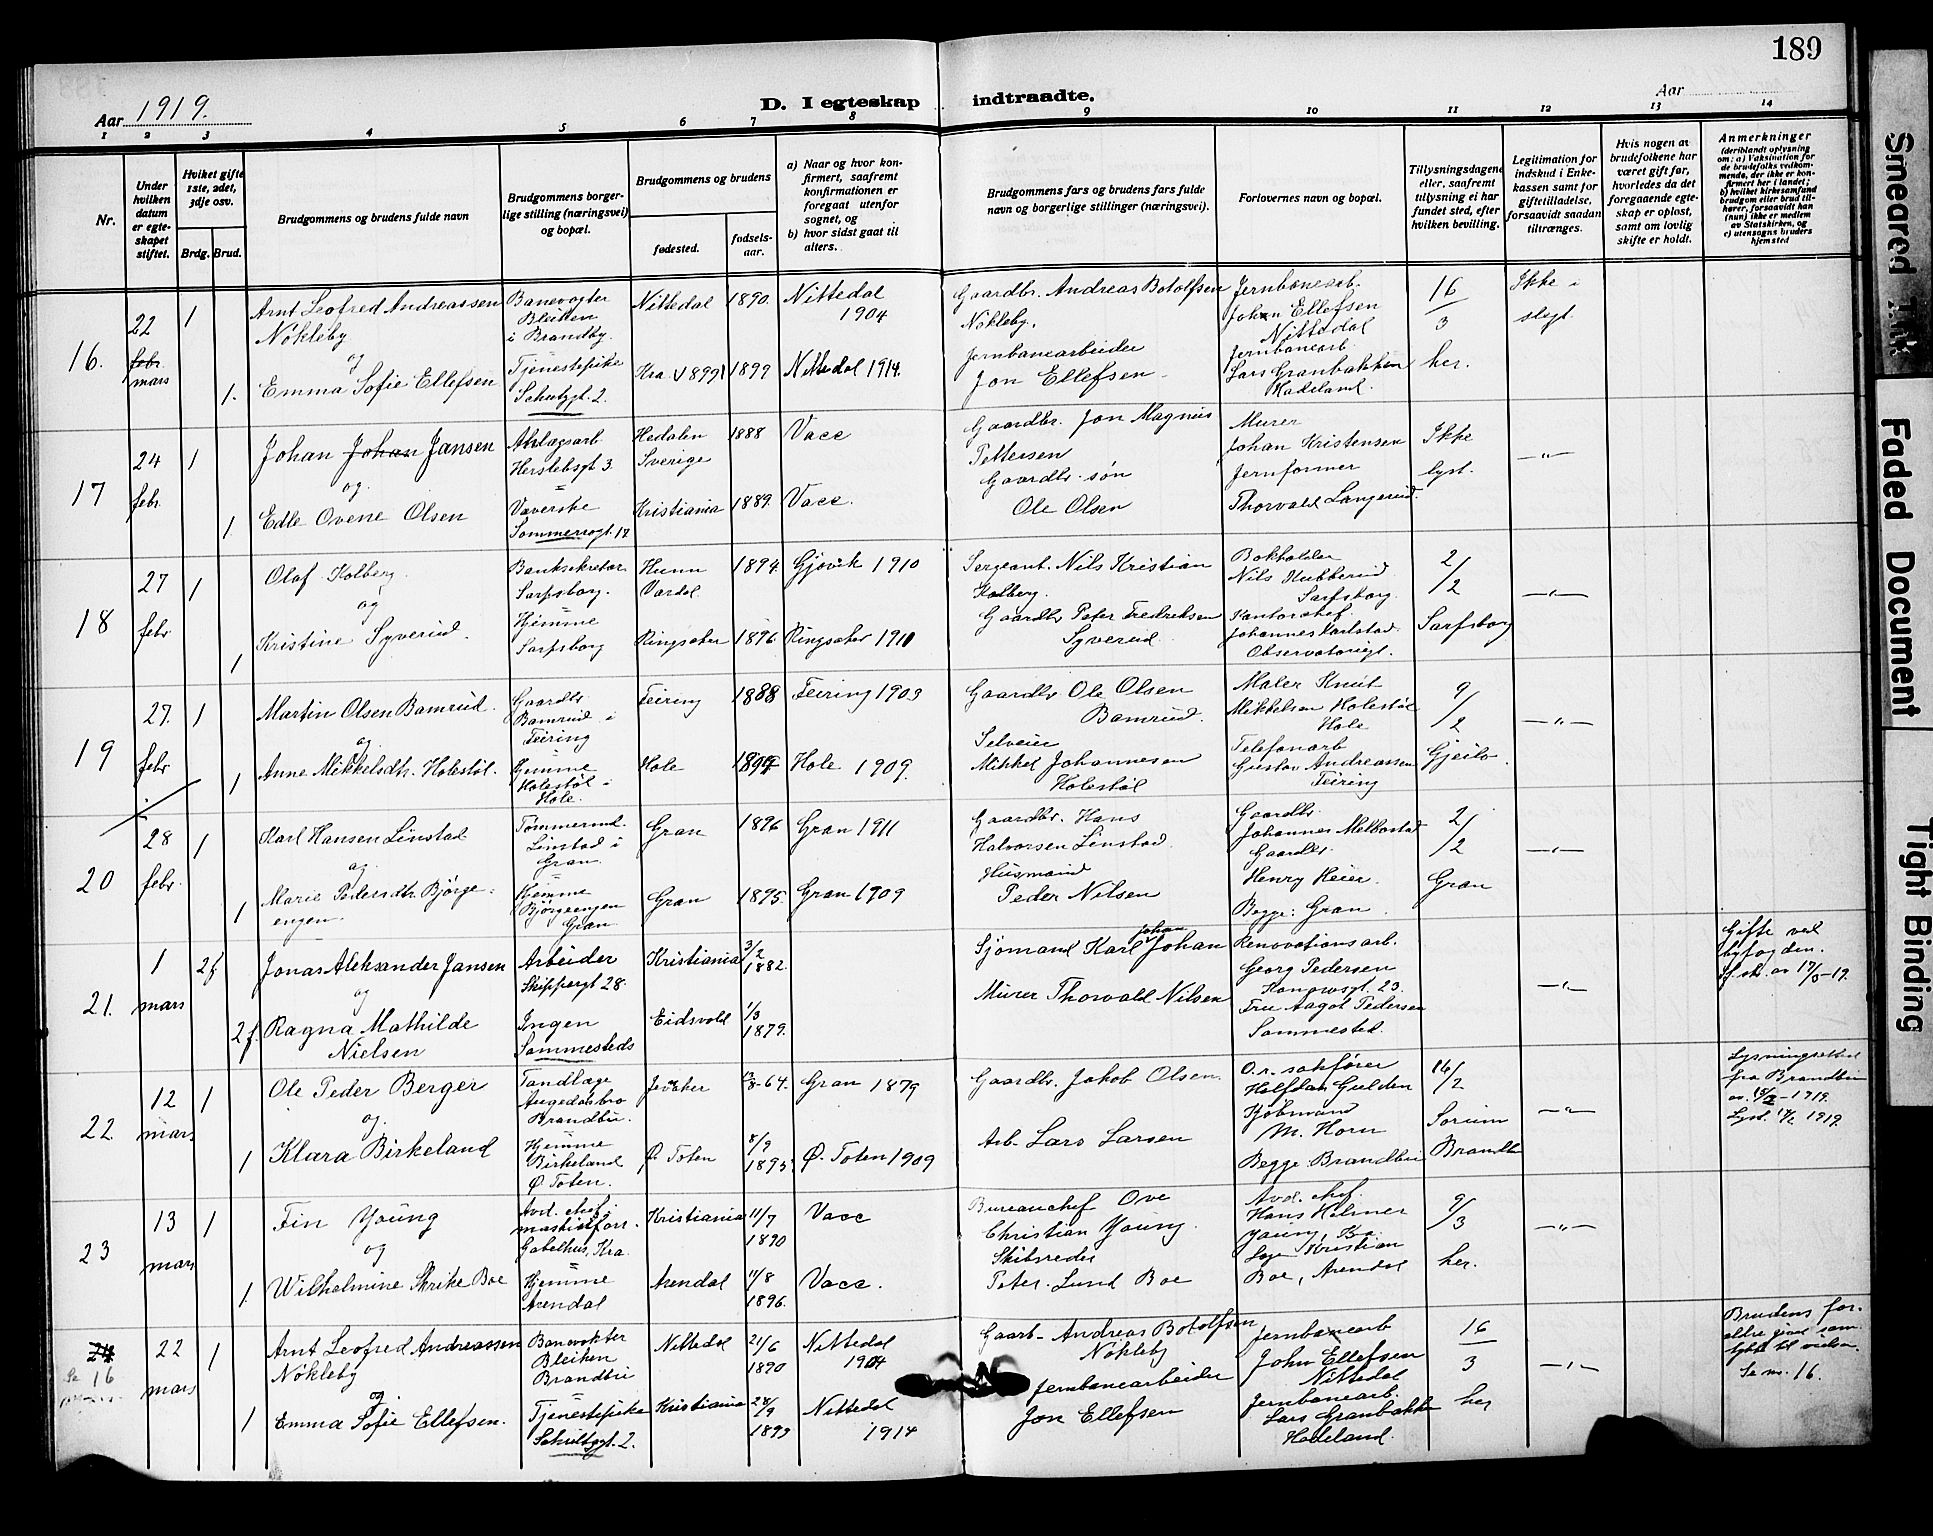 189
Aar 1919.
D. I egteskap indtraadte.
Aar
1 2 3 4 5 6 7 8 9 10 11 12 13 14
Nr.
Under hvilken datum er egteskapet stiftet.
Hvilket gifte 1ste, 2det, 3dje osv.
Brdg. Brud.
Brudgommens og brudens fulde navn
Brudgommens borgerlige stilling (næringsvei) og bopæl.
Brudgommens og brudens
fødested.
fødselsaar.
a) Naar og hvor konfirmert, saafremt konfirmationen er foregaat utenfor sognet, og
b) hvor sidst gaat til alters.
Brudgommens fars og brudens fars fulde navn og borgerlige stillinger (næringsvei).
Forlovernes navn og bopæl.
Tillysningsdagene eller, saafremt tillysning ei har fundet sted, efter hvilken bevilling.
Legitimation for indskud i Enkekassen samt for giftetilladelse, forsaavidt saadan tiltrænges.
Hvis nogen av brudefolkene har været gift før, hvorledes da det foregaaende egteskap er opløst, samt om lovlig skifte er holdt.
Anmerkninger
(deriblandt oplysning om: a) Vaksination for de brudefolks vedkommende, der ikke er konfirmert her i landet; b) hvilket kirkesamfund brudgom eller brud tilhører, forsaavidt han (hun) ikke er medlem av Statskirken, og c) utensogns bruders hjemsted
16. 22 febr mars 1
Arnt Leofred Andreassen Nøkleby
Banevogter Bleiken i Brandby.
Nittedal 1890. Nittedal 1904
Gaardbr. Andreas Botolfsen Nøkleby.
Jernbanearb. Johan Ellefsen Nittedal
16/3 Ikke i slegt.
og
1. Emma Sofie Ellefsen
Tjenestepike Schultzgt. 2.
Kra 1899 Nittedal 1914.
Jernbanearbeider Jon Ellefsen
Jernbanearb. Lars Granbakken Hadeland.
her.
17 24 febr. 1
Johan Johan Jansen
Anlagsarb. Herslebsgt 3.
Hedalen Sverige 1888 Vacc
Gaardbr. Jon Magnus Pettersen
Murer Johan Kristensen
Ikke lyst. -"-
og.
1 Edle Ovene Olsen
Væverske Sommerrogt. 17
Kristiania 1889. Vacc.
Gaardbr. søn Ole Olsen
Jernformer Thorvald Langerud.
18 27 febr 1
Olaf Kolberg.
Banksekretær Sarpsborg.
Hunn Vardal 1894. Gjøvik 1910
Sergeant. Nils Kristian Kolberg.
Bokholder Nils Hubberud Sarpsborg.
2/2 -"-
og
1 Kristine Syverud.
Hjemme Sarpsborg
Ringsaker 1896 Ringsaker 1911
Gaardbr Peter Fredriksen Syverud.
Kontorchef. Johannes Karlstad. Observatoriegt.
Sarpsborg
19 27. febr 1
Martin Olsen Bamrud.
Gaardbr Bamrud i Feiring
Feiring 1888 Feiring 1903
Gaardbr Ole Olsen Bamrud.
Maler Knut Mikkelsen Holestøl Hole
9/2 -"-
og
1 Anne Mikkelsdtr. Holestøl.
Hjemme Holestøl i Hole.
Hole Hole 1909.
Selveier Mikkel Johannesen Holestøl
Telefonarb Gustav Andreassen Feiring
Gjeilo.
20 28 febr. 1
Karl Hansen Linstad
Tømmermd. Linstad i Gran.
Gran 1896 Gran 1911
Gaardbr. Hans Halvorsen Linstad.
Gaardbr. Johannes Melbostad
2/2 -"-
og.
1 Marie Pedersdtr. Bjørgeengen.
Hjemme Bjørgeengen Gran
Gran 1895. Gran 1909
Husmand Peder Nilsen
Gaardbr. Henry Heier. Begge: Gran
Gran
21. 1 mars 2f
Jonas Aleksander Jansen
Arbeider Skippergt 28.
Kristiania 3/2 1882.
Sjømand Karl Johan
Renovationsarb. Georg Pedersen Kanowsgt. 23.
-"-
Gifte ved byfogden.
og
2f. Ragna Mathilde Nielsen
Ingen Sammesteds
Eidsvold 1/3 1879.
Murer Thorvald Nilsen
Fru Aagot Pedersen Sammested.
22. 12 mars 1
Ole Peder Berger
Tandlæge Brandbu.
Jevnaker Gran 1879
Gaardbr. Jakob Olsen.
O.r. sakfører Halfdan Gulden
16/2 Sorium Brandbu -"-
Lysningsattest fra Brandbu
og.
1 Klara Birkeland
Hjemme Birkeland Ø. Toten.
Ø. Toten 8/9 1895 Ø. Toten 1909
Arb. Lars Larsen
Kjøbmand M. Horn Begge: Brandbu
23 13 mars 1
Fin Young
Avd. chef i maskinforr. Gabelhus, Kra.
Kristiania 11/7 1890 Vacc
Bureauchef Ove Christian Young.
Avd. chef. Hans Holmer Young, Kra.
9/3 her. -"-
og
1. Wilhelmine Skrike Boe
Hjemme Arendal
Arendal 11/8 1896. Vacc.
Skibsreder Peter Lund Boe
Kristian Boe, Arendal
24 Se 16
22 mars 1
Arnt Leofred Andreassen Nøkleby
Banevokter Bleiken Brandbu
Nittedal 21/6 1890 Nittedal 1904
Gaarb- Andreas Botolfsen Nøkleby
Jernbanearb John Ellefsen Nittedal
16/3 her -"-
Brudens forældre giver samtykke til vielsen. Se nr. 16.
og
1 Emma Sofie Ellefsen.
Tjenestepike Schultzgt. 2.
Kristiania 24/9 1899 Nittedal 1914
Jernbanearbeider Jon Ellefsen
Jernbanearb. Lars Granbakke Hadeland.
Smeared Ink
Faded Document
Tight Binding